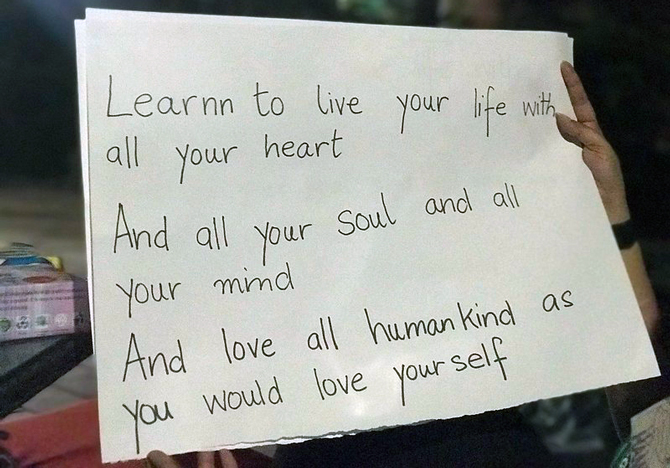 Learnn to live your life with
all your heart
And all your soul and all
your mimd
And love all humankind as
you would love yourself